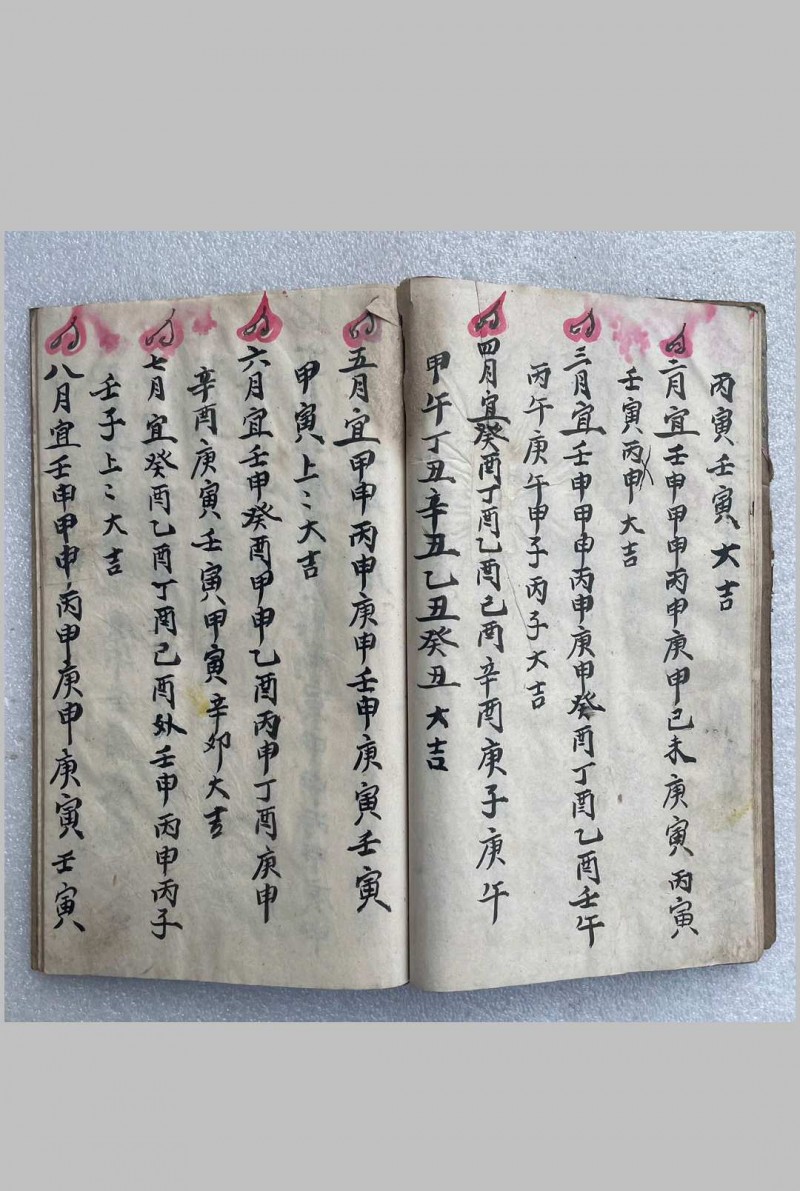 丙寅壬寅大吉
二月宜壬申甲申丙申庚申己未庚寅丙寅
壬寅丙申大吉
三月宜壬申甲申丙申庚申癸酉丁酉乙酉壬午
丙午庚午甲子丙子大吉
四月宜癸酉丁酉乙酉己酉辛酉庚子庚午
甲午丁丑辛丑乙丑癸丑大吉
五月宜甲申丙申庚申壬申庚寅壬寅
甲寅上〻大吉
六月宜壬申癸酉甲申乙酉丙申丁酉庚申
辛酉庚寅壬寅甲寅辛卯大吉
七月宜癸酉乙酉丁酉己酉外壬申丙申丙子
壬子上〻大吉
八月宜壬申甲申丙申庚申庚寅壬寅